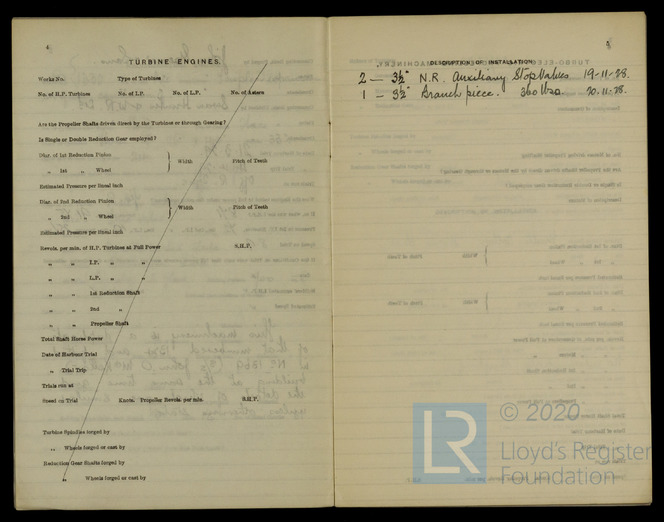 4
TURBINE ENGINES.
Works No. Type of Turbines
No. of H.P. Turbines No. of I.P. No. of L.P. No. of Astern
Are the Propeller Shafts driven direct by the Turbines or through Gearing?
Is Single or Double Reduction Gear employed?
Diar. of 1st Reduction Pinion
„ 1st „ Wheel } Width Pitch of Teeth
Estimated Pressure per lineal inch
Diar. of 2nd Reduction Pinion
„ 2nd „ Wheel } Width Pitch of Teeth
Estimated Pressure per lineal inch
Revols. per min. of H.P. Turbines at Full Power S.H.P.
„ „ I.P. „ „
„ „ L.P. „ „
„ „ 1st Reduction Shaft
„ „ 2nd „
„ „ Propeller Shaft
Total Shaft Horse Power
Date of Harbour Trial
„ Trial Trip
Trials run at
Speed on Trial Knots. Propeller Revols. per min. S.H.P.
Turbine Spindles forged by
„ Wheels forged or cast by
Reduction Gear Shafts forged by
„ Wheels forged or cast by
DESCRIPTION OF INSTALLATION
2 — 3½" N.R. Auxiliary Stop Valves 19-11-28.
1 — 3½" Branch piece. 360 lbs. 20.11-28.
© 2020
LR Lloyd's Register
Foundation